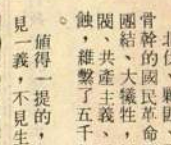 北伐、
骨幹的國民革命
團結、大犧牲，
閥、共產主義、
蝕，維繫了五千
。
值得一提的，
見一義，不見生